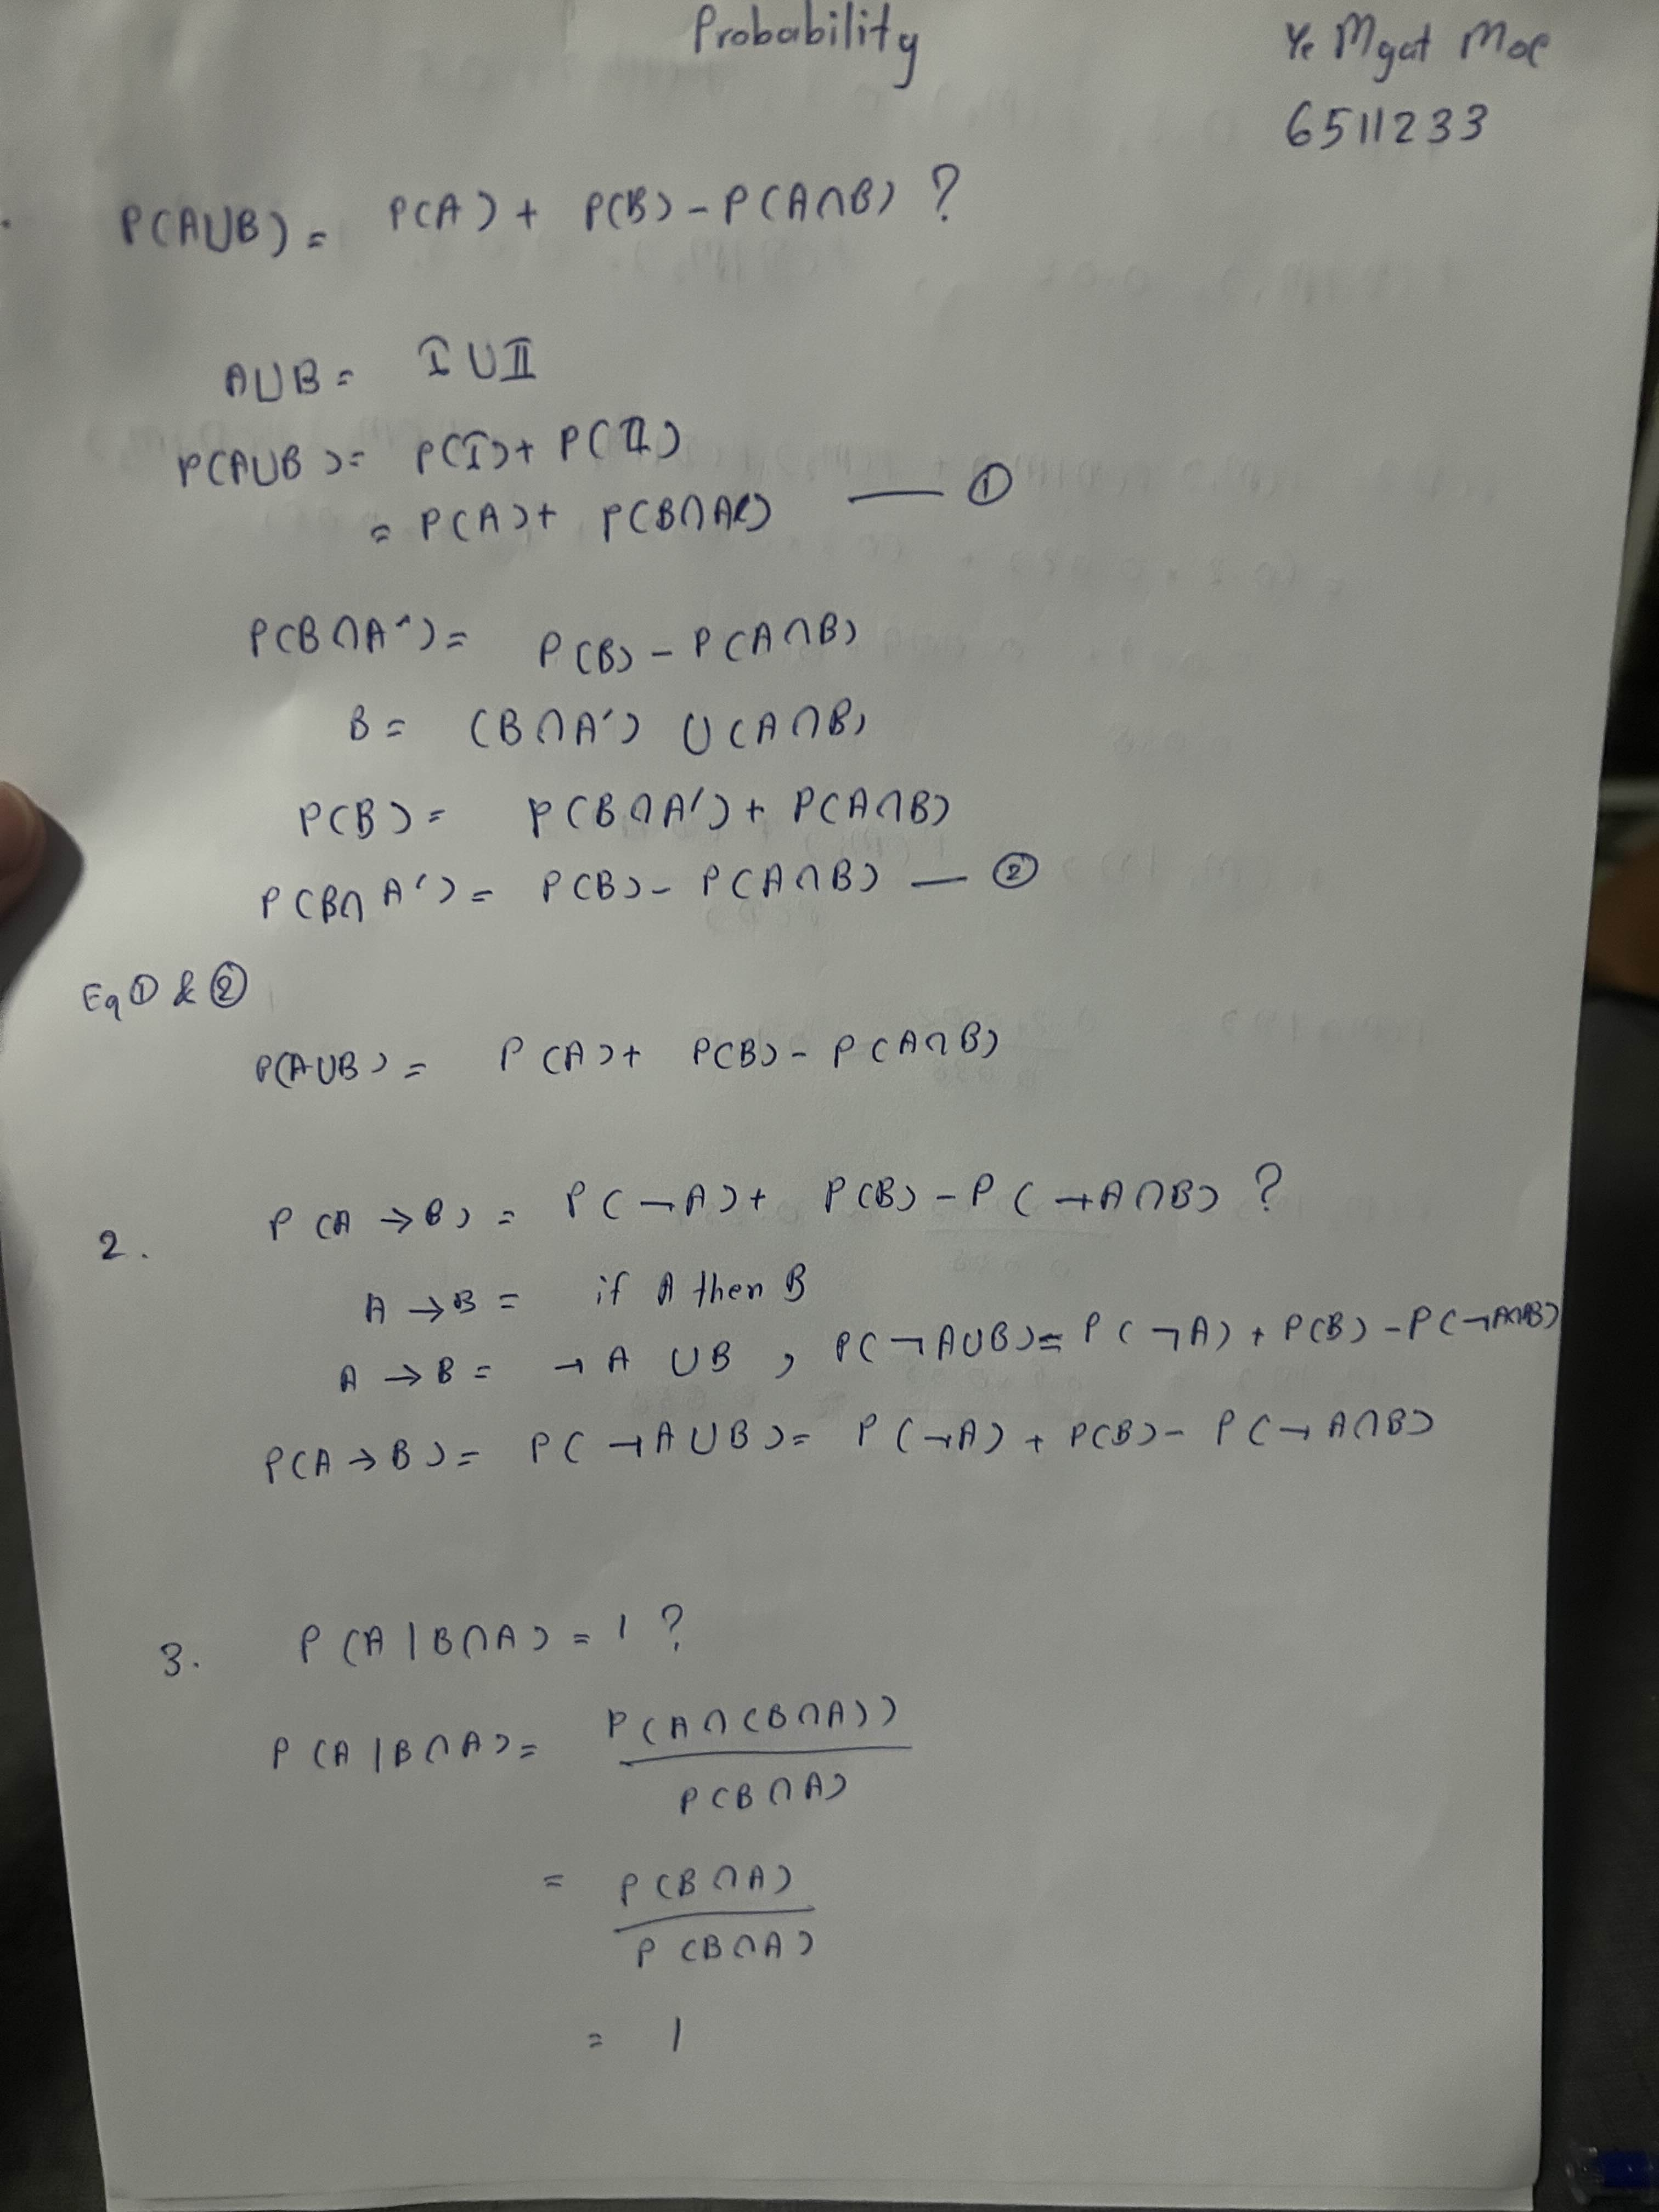 Probability
Ye Myat Moe
6511233
P(A∪B) = P(A) + P(B) - P(A∩B) ?
A∪B = I ∪ II
P(A∪B) = P(I) + P(II)
= P(A) + P(B∩A') — ①
P(B∩A') = P(B) - P(A∩B)
B = (B∩A') ∪ (A∩B)
P(B) = P(B∩A') + P(A∩B)
P(B∩A') = P(B) - P(A∩B) — ②
Eq ① & ②
P(A∪B) = P(A) + P(B) - P(A∩B)
2. P(A → B) = P(¬A) + P(B) - P(¬A∩B) ?
A → B = if A then B
A → B = ¬A ∪ B , P(¬A∪B) = P(¬A) + P(B) - P(¬A∩B)
P(A → B) = P(¬A ∪ B) = P(¬A) + P(B) - P(¬A∩B)
3. P(A | B∩A) = 1 ?
P(A | B∩A) = P(A∩(B∩A))
P(B∩A)
= P(B∩A)
P(B∩A)
= 1